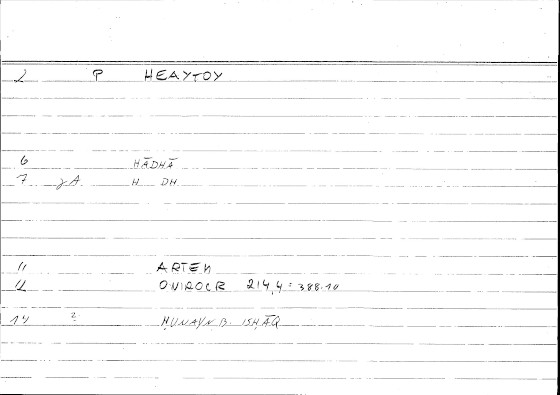 2 P HEAYTOY
6 HĀDHĀ
7 γA H DH
11 ARTEM
12 ONIROCR 214,4 = 388.10
14 ? ḤUNAYN B. ISḤĀQ